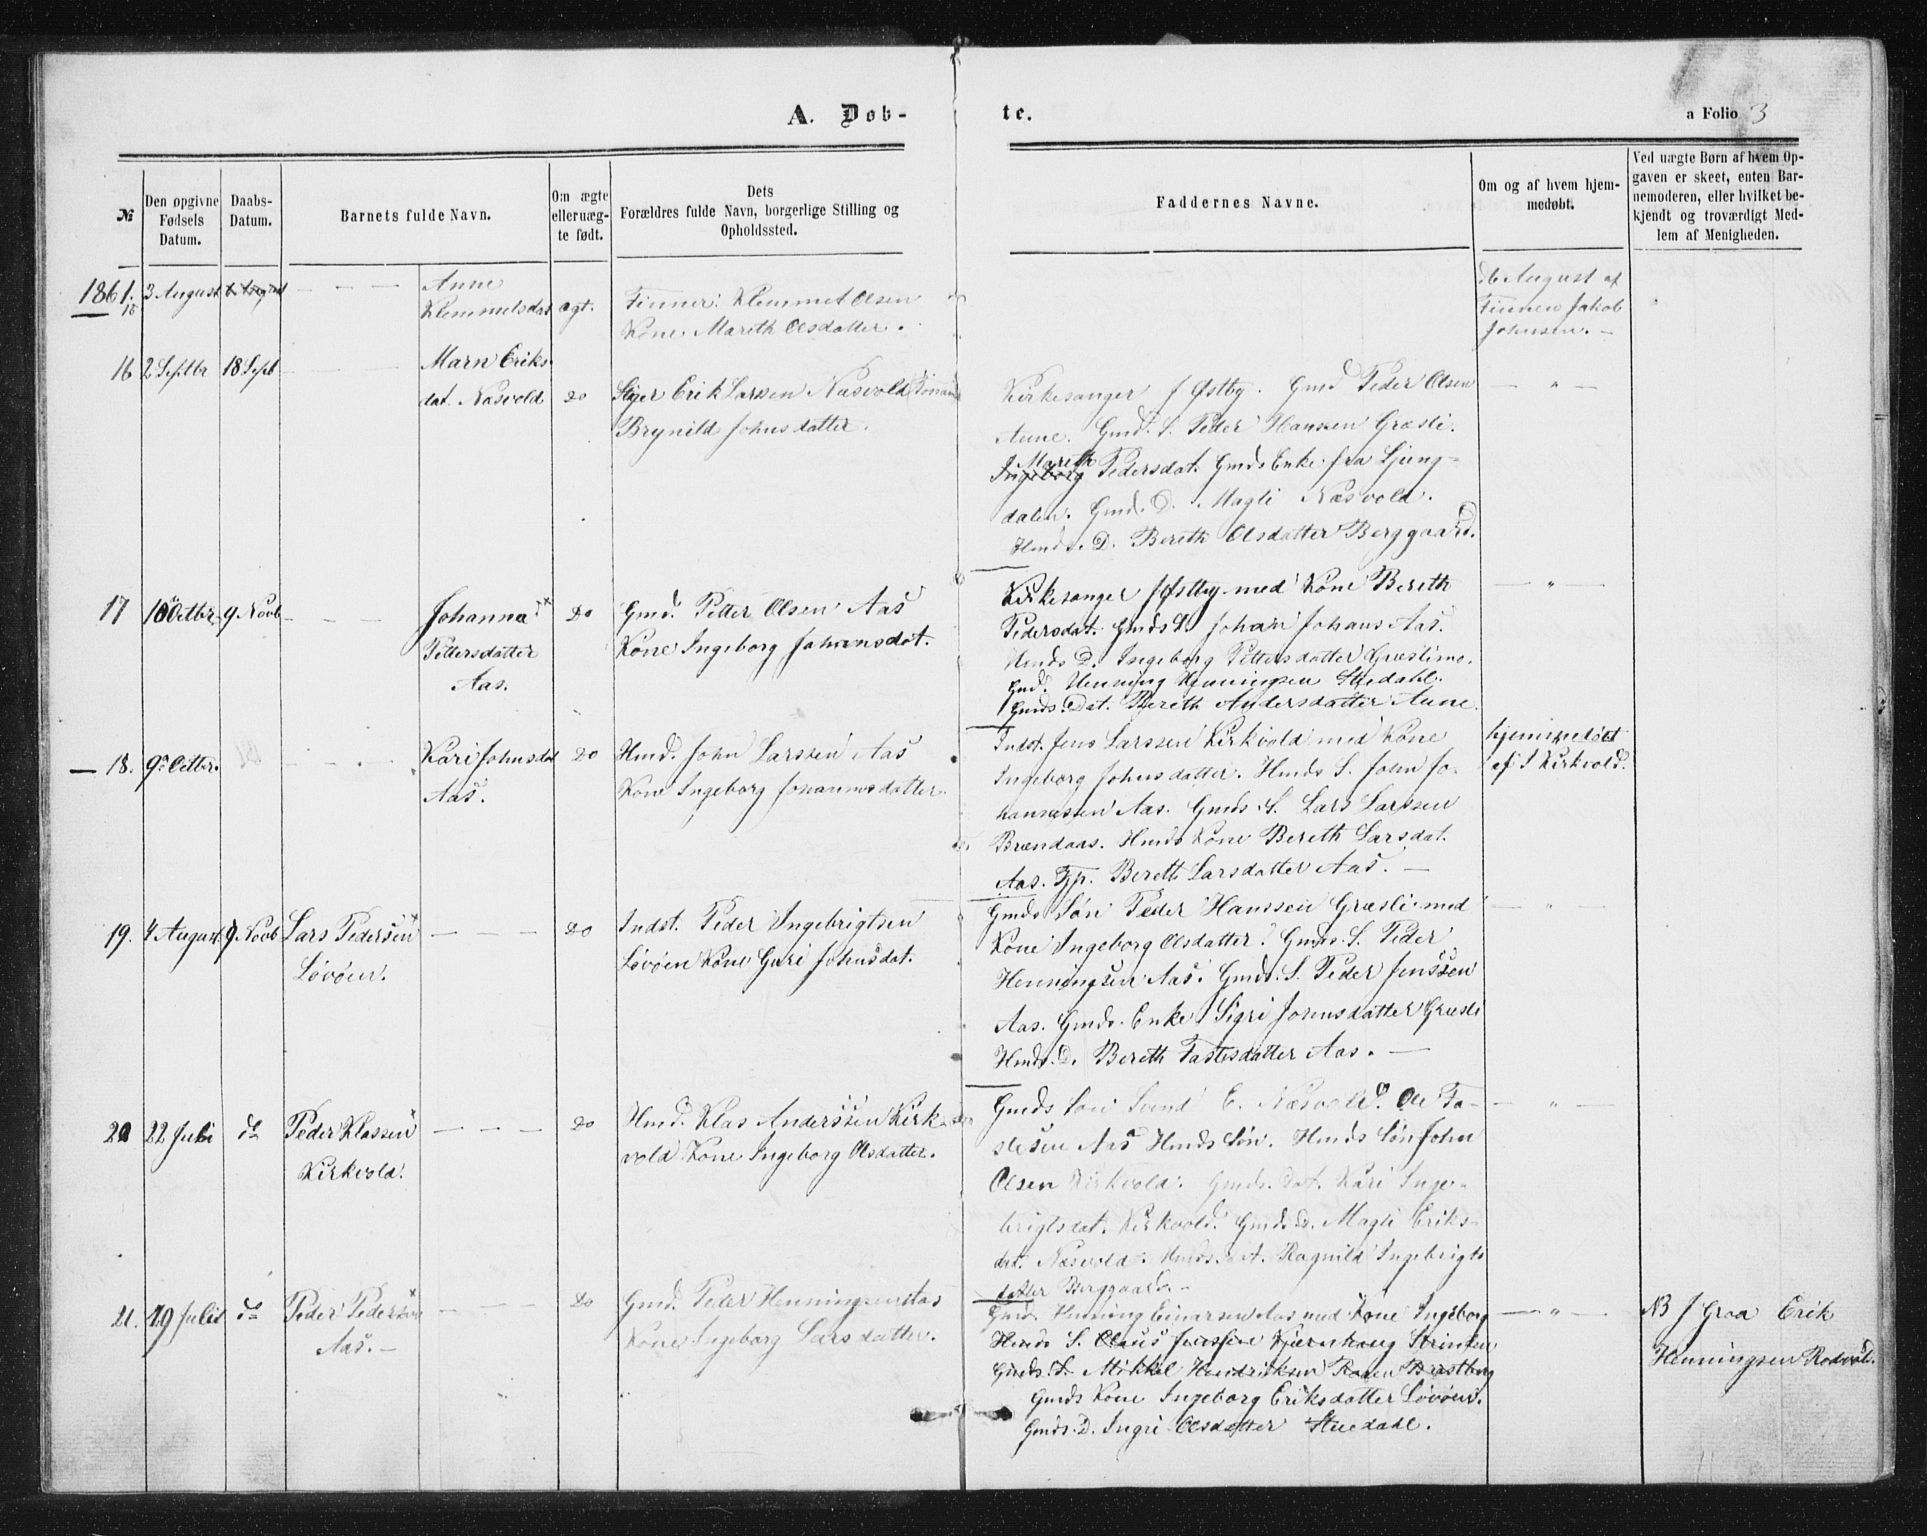 A. Døb-
te.
a Folio 3
№
Den opgivne Fødsels Datum.
Daabs-Datum.
Barnets fulde Navn.
Om ægte eller uæg-te født.
Dets
Forældres fulde Navn, borgerlige Stilling og
Opholdssted.
Faddernes Navne.
Om og af hvem hjem-
medøbt.
Ved uægte Børn af hvem Op-
gaven er skeet, enten Bar-
nemoderen, eller hvilket be-
kjendt og troværdigt Med-
lem af Menigheden.
1861.
15
3 August
Anne
Klemmetsdat
ægt.
Finner: Klemmet Olsen
Kone Mareth Olsdatter.
d 6 August af
Finnen Jakob
Johnsen. -
16
2 Septbr
18 Sept
Marn Eriks
dat. Næsvold
do
Erik Larsen Næsvold
Brynild Johnsdatter.
Kirkesanger J Østby. Gmd Peder Olsen
Aune. Gmd. S. Peder Hanssen Græsli.
Mareth
Ingeborg Pedersdat. Gmds Enke fra Ljung-
dalen. Gmd. D. Magli Næsvold.
Hmds. D. Bereth Olsdatter Berggaard.
- " -
17
10 Octbr
9 Novb
Johanna
Pettersdatter
Aas.
do
Gmd. Petter Olsen Aas
Kone Ingeborg Johansdat.
Kirkesanger J Østby med Kone Bereth
Pedersdat. Gmds S. Johan Johans Aas.
Hmds D. Ingeborg Pettersdatter Græslimo.
Gmd. Henning Henningsen Stuedahl.
Gmds. Dat. Bereth Andersdatter Aune.
- " -
18.
9de Octbr.
Kari Johnsdat
Aas.
do
Hmd. John Larssen Aas
Kone Ingeborg Johannesdatter.
Indst. Jens Larssen Kirkvold med Kone
Ingeborg Johnsdatter. Hmds S. John Jo-
hannessen Aas. Gmds S. Lars Larssen
Brændaas. Hmds Kone Bereth Larsdat.
Aas. Tjp. Bereth Larsdatter Aas. -
hjemmedøbt
af J Kirkvold.
19.
4 August
9 Novb
Lars Pedersen
Løvøen.
do
Indst. Peder Ingebrigtsen
Løvøen Kone Guri Johnsdat.
Gmds Søn Peder Hanssen Græsli med
Kone Ingeborg Olsdatter. Gmds. S. Peder
Henningsen Aas. Gmds. S. Peder Jenssen
Aas. Gmds. Enke Sigri Johnsdatter Græsli
Hmds. D. Bereth Fastesdatter Aas. -
- " -
20
22 Juli
do
Peder Klassen
Kirkvold.
do
Hmd. Klas Anderssen Kirk-
vold Kone Ingeborg Olsdatter.
Gmds Søn Svend E. Næsvold. Ole Fa-
stesen Aas Hmds Søn. Hmds Søn John
Olsen Kirkvold. Gmds. Dat. Kari Inge-
brigtsdat. Kirkvold. Gmds D. Magli Eriks-
dat. Næsvold. Hmds. Dat. Ragnild Ingebrigts
datter Berggaard. -
- " -
21.
19 Juli
do
Peder Pedersen
Aas. -
do
Gmd. Peder Henningsen Aas
Kone Ingeborg Larsdatter.
Gmd. Henning Einarsen Aas med Kone Ingeborg
Hmds S. Claus Jenssen Kjernhaug
Gmds. S. Mikkel Hendriksen
Gmds Kone Ingeborg Eriksdatter Løvøen.
Gmds. D. Ingri Olsdatter Stuedahl.
- " -
NB J Graa Erik
Henningsen Rodvold.